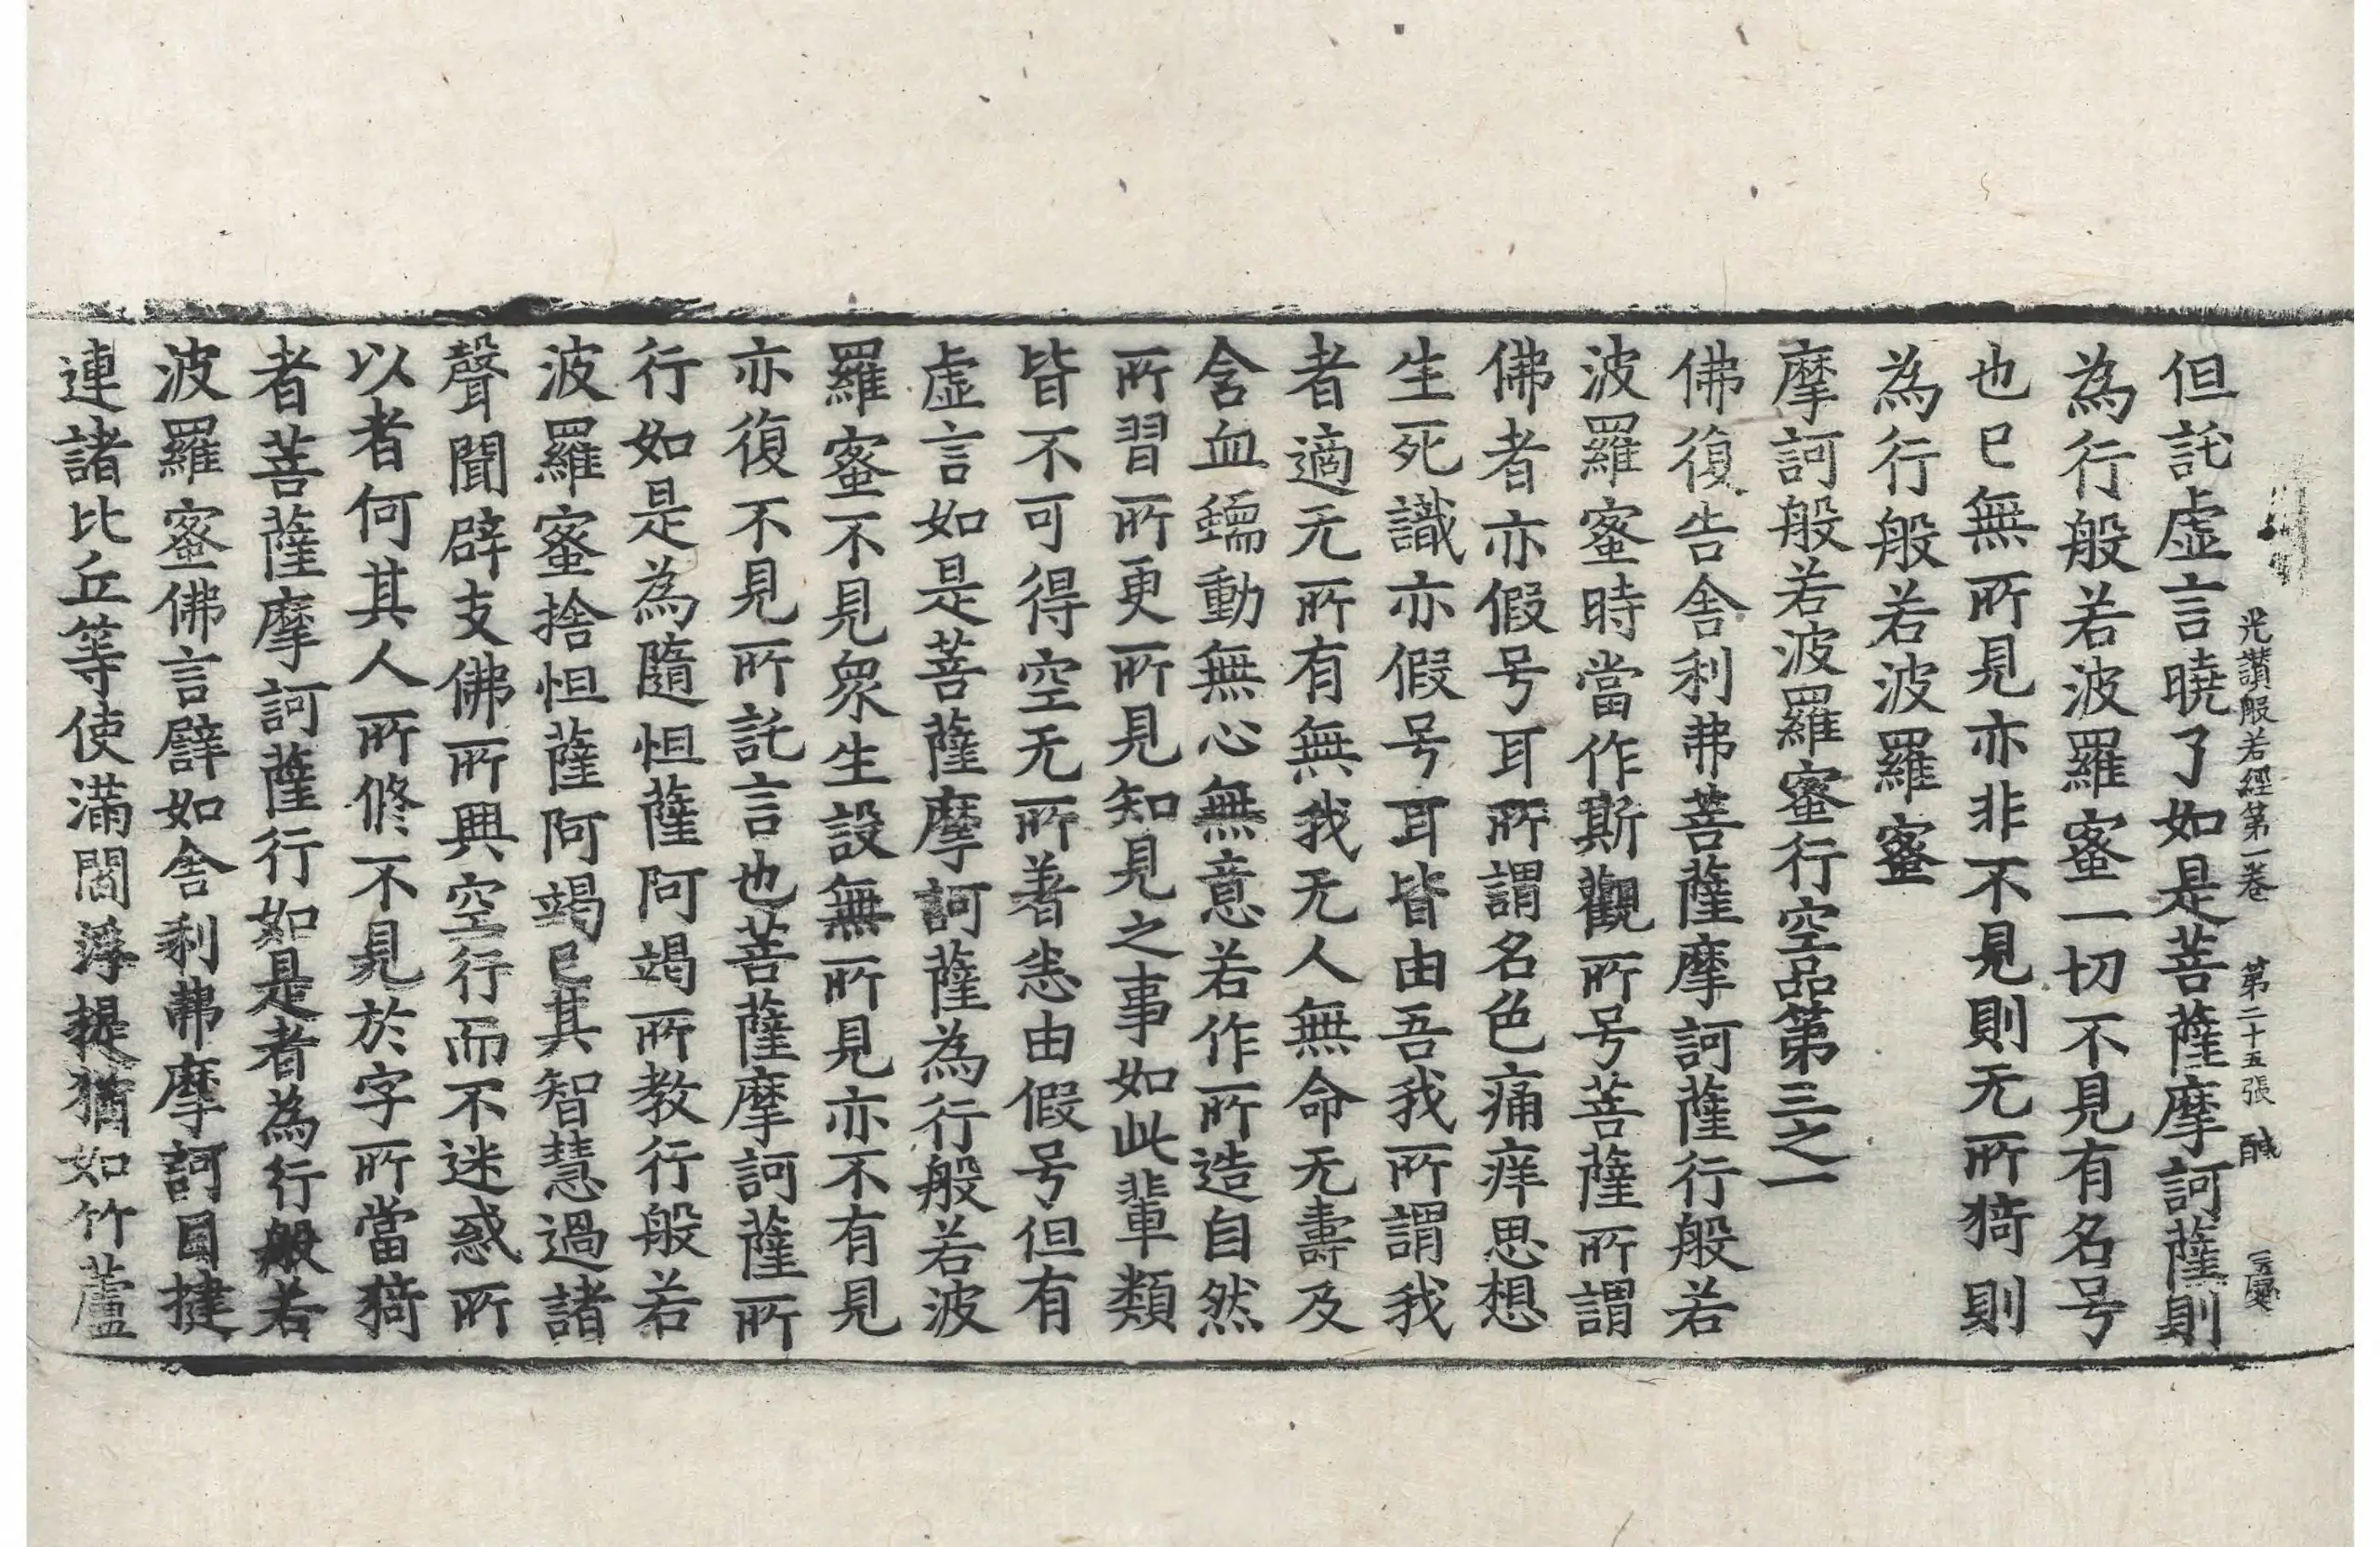 光讃般若經第一卷　第二十五張　醎
但託虛言曉了如是菩薩摩訶薩則
為行般若波羅蜜一切不見有名号
也已無所見亦非不見則无所猗則
為行般若波羅蜜
摩訶般若波羅蜜行空品第三之一
佛復告舍利弗菩薩摩訶薩行般若
波羅蜜時當作斯觀所号菩薩所謂
佛者亦假号耳所謂名色痛痒思想
生死識亦假号耳皆由吾我所謂我
者適无所有無我无人無命无壽及
含血蠕動無心無意若作所造自然
所習所更所見知見之事如此輩類
皆不可得空无所著悉由假号但有
虛言如是菩薩摩訶薩為行般若波
羅蜜不見衆生設無所見亦不有見
亦復不見所託言也菩薩摩訶薩所
行如是為隨怛薩阿竭所教行般若
波羅蜜捨怛薩阿竭已其智慧過諸
聲聞辟支佛所興空行而不迷惑所
以者何其人所修不見於字所當猗
者菩薩摩訶薩行如是者為行般若
波羅蜜佛言譬如舍利弗摩訶目揵
連諸比丘等使滿閻浮提猶如竹蘆